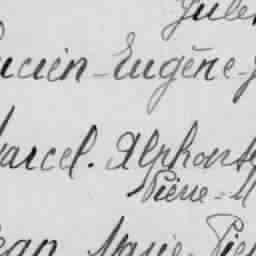 Jules
Lucien-Eugène-J
Marcel. Alphonse
Pierre-M
Jean Marie-Pie